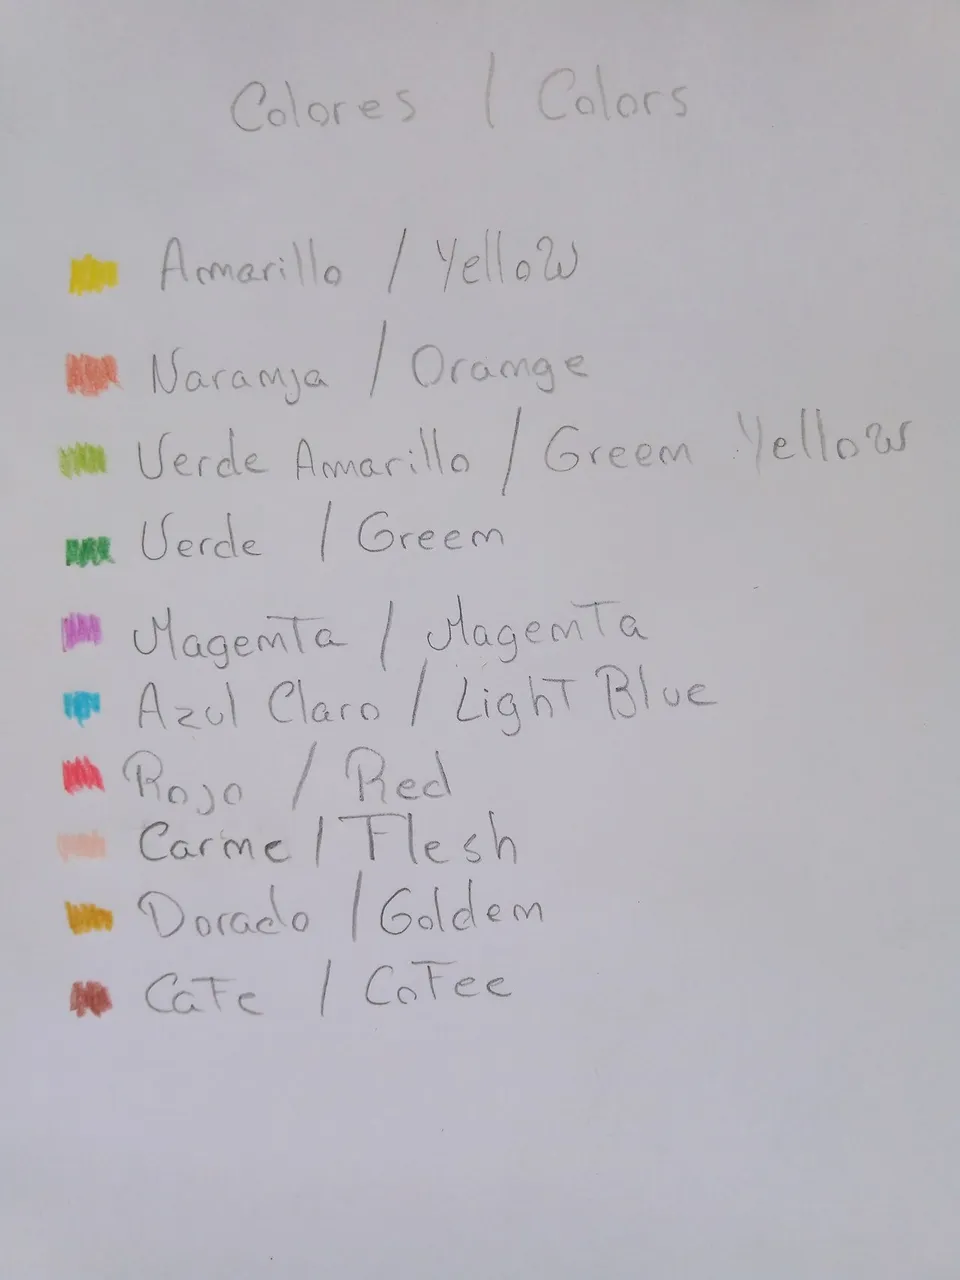 Colores / Colors
Amarillo / Yellow
Naranja / Orange
Verde Amarillo / Green Yellow
Verde / Green
Magenta / Magenta
Azul Claro / Light Blue
Rojo / Red
Carne / Flesh
Dorado / Golden
Cafe / Cofee